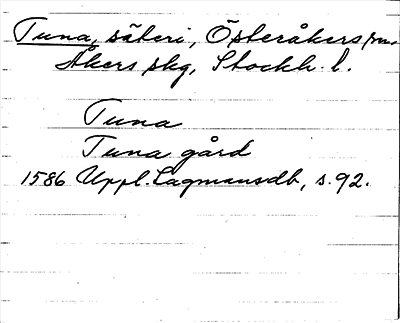 Tuna, säteri, Österåkers sn.
Åkers skg, Stockh. l.
Tuna
Tuna gård
1586 Uppl. Lagmansdb, s. 92.